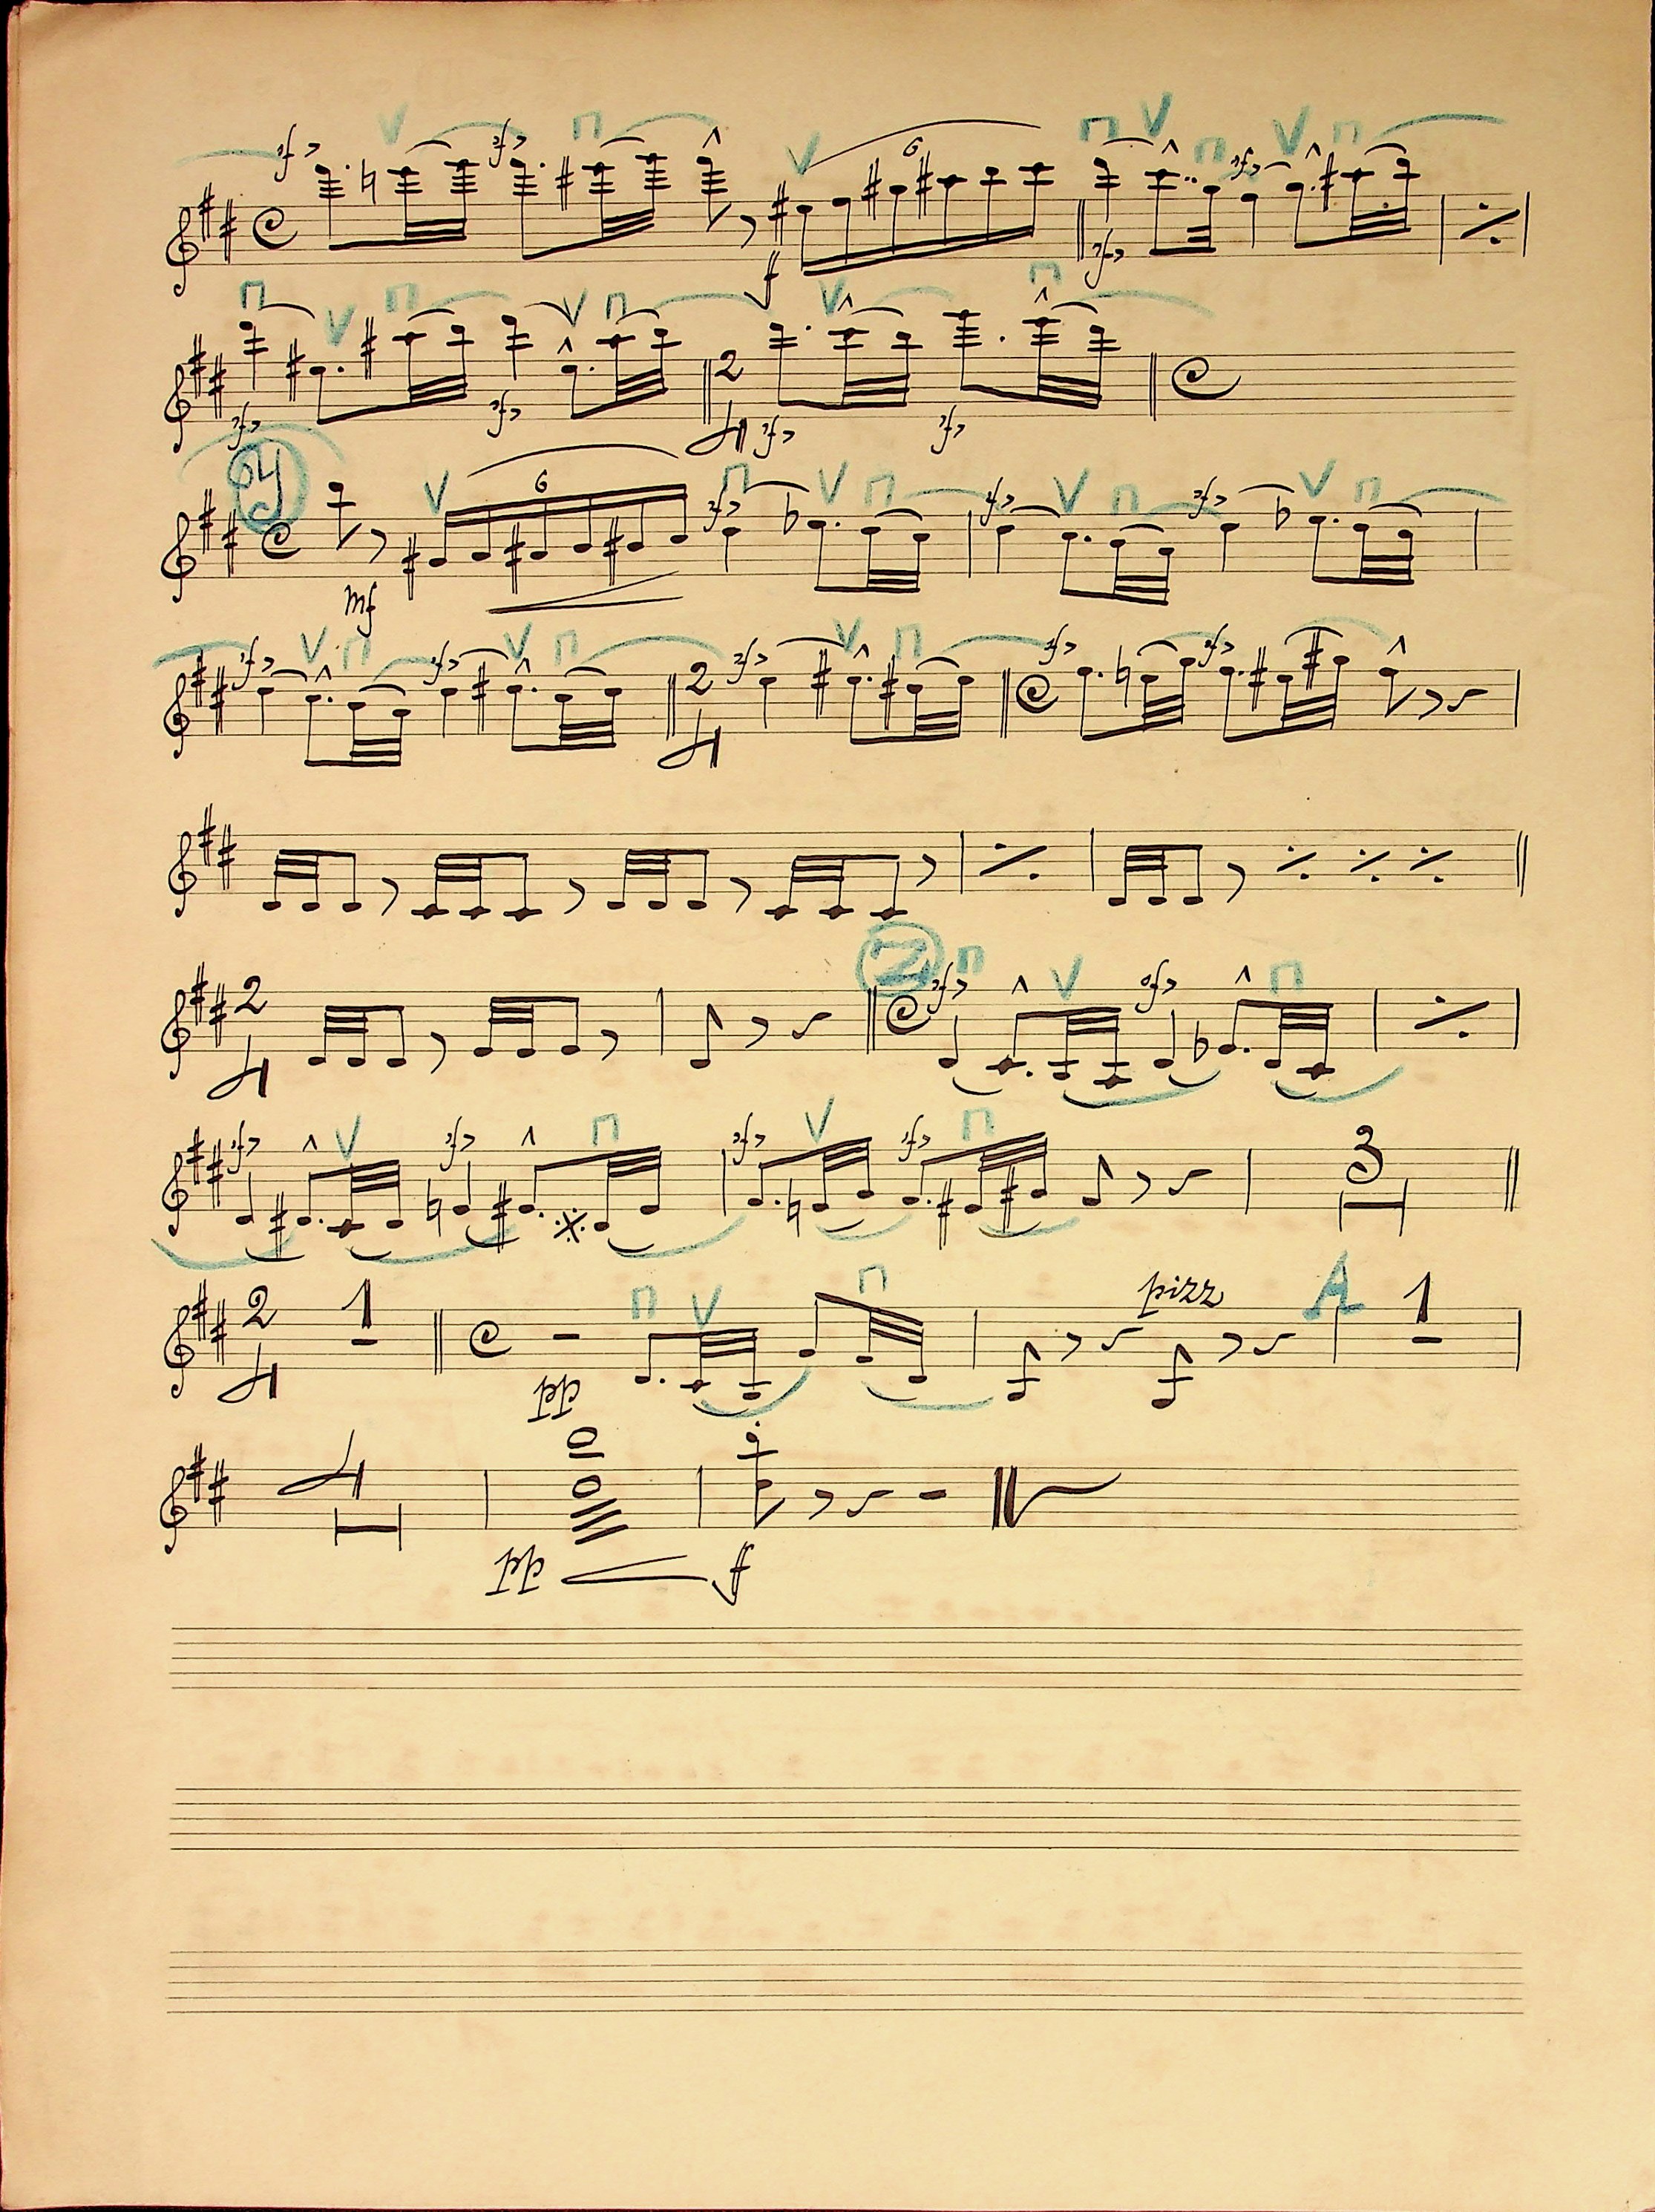 sf sf 6 f sf sf
sf sf 2 4 sf sf
Y mf 6 sf sf sf
sf sf 2 4 sf sf sf
2 4 Z sf sf
sf sf sf sf 3
2 4 1 pp pizz A 1
4 pp f